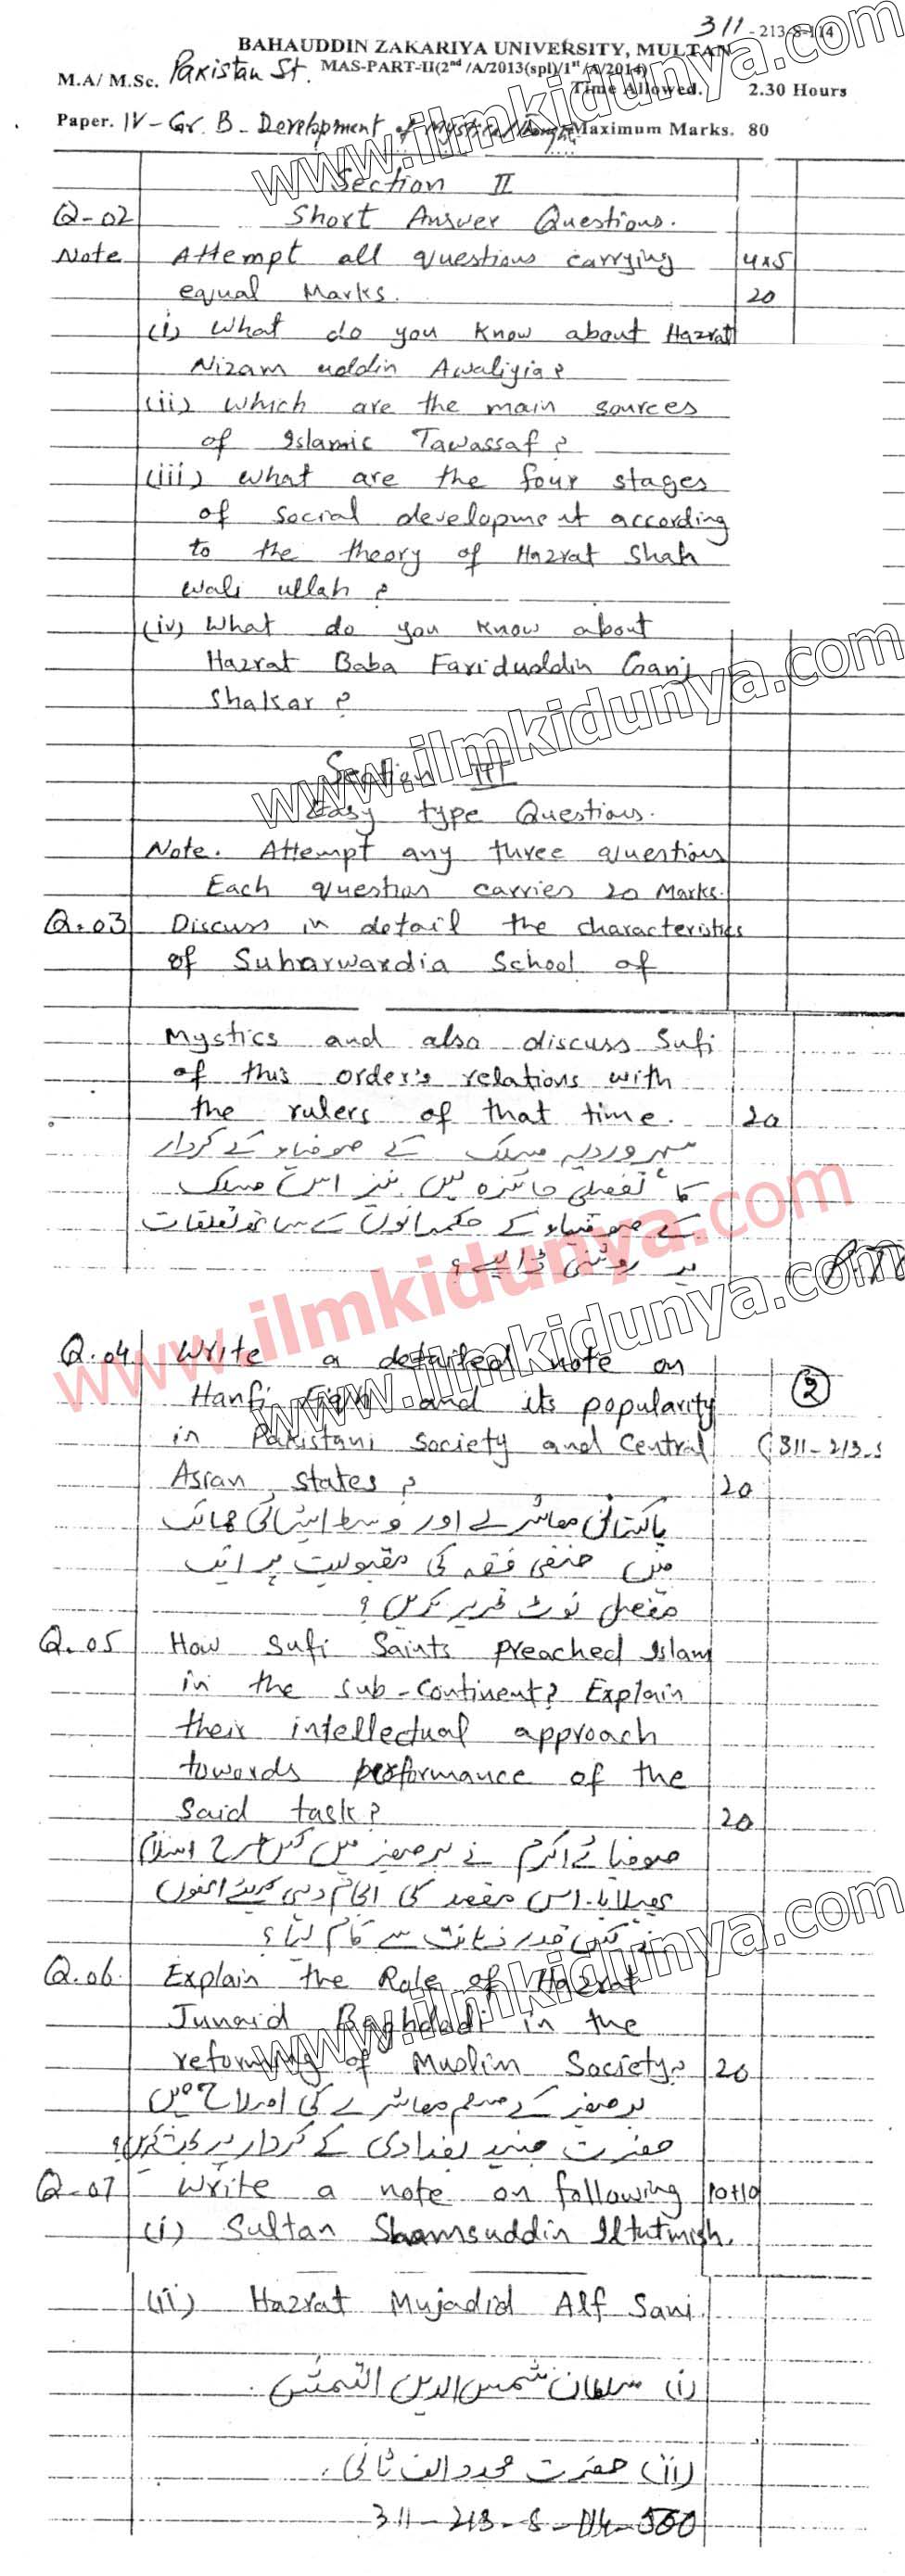 311-213-S-114
BAHAUDDIN ZAKARIYA UNIVERSITY, MULTAN
M.A/ M.Sc. Pakistan St. MAS-PART-II(2nd /A/2013(spl)/1st /A/2014)
Time Allowed. 2.30 Hours
Paper. IV-Gr. B- Development of Mystical Maximum Marks. 80
www.ilmkidunya.com
Section II
Q-02 Short Answer Questions.
Note Attempt all questions carrying 4x5
equal Marks. 20
(i) What do you know about Hazrat
Nizam uddin Awaliyia?
(ii) which are the main sources
of Islamic Tawassaf?
(iii) what are the four stages
of social development according
to the theory of Hazrat Shah
wali ullah?
(iv) What do you know about
Hazrat Baba Fariduddin Ganj
Shakar?
www.ilmkidunya.com
Section III
Easy type Questions.
Note. Attempt any three questions
Each question carries 20 Marks.
Q.03 Discuss in detail the characteristics
of Suharwardia School of
Mystics and also discuss Sufi
of this order's relations with
the rulers of that time. 20
سہروردیہ مسلک کے صوفیاء کے کردار
کا تفصیلی جائزہ لیں نیز اس مسلک
کے صوفیاء کے حکمرانوں کے ساتھ تعلقات
پر روشنی ڈالیے؟
www.ilmkidunya.com
www.ilmkidunya.com
2
Q.04 Write a detailed note on
Hanfi and its popularity
in Pakistani Society and Central (311-213-S
Asian states? 20
پاکستانی معاشرے اور وسط ایشیائی ممالک
میں حنفی فقہ کی مقبولیت پر ایک
مفصل نوٹ تحریر کریں؟
Q.05 How Sufi Saints preached Islam
in the sub-continent? Explain
their intellectual approach
towards performance of the
said task? 20
صوفیائے اکرم نے برصغیر میں کس طرح اسلام
پھیلایا. اس مقصد کی انجام دہی کیلئے انہوں
نے کس قدر ذہانت سے کام لیا؟
www.ilmkidunya.com
Q.06 Explain the Role of Hazrat
Junaid Baghdadi in the
reforming of Muslim Society? 20
برصغیر کے مسلم معاشرے کی اصلاح میں
حضرت جنید بغدادی کے کردار پر بحث کریں؟
Q.07 Write a note on following 10+10
(i) Sultan Shamsuddin Iltutmish.
(ii) Hazrat Mujadid Alf Sani.
(i) سلطان شمس الدین التمش.
(ii) حضرت مجدد الف ثانی.
311-213-S-114-500